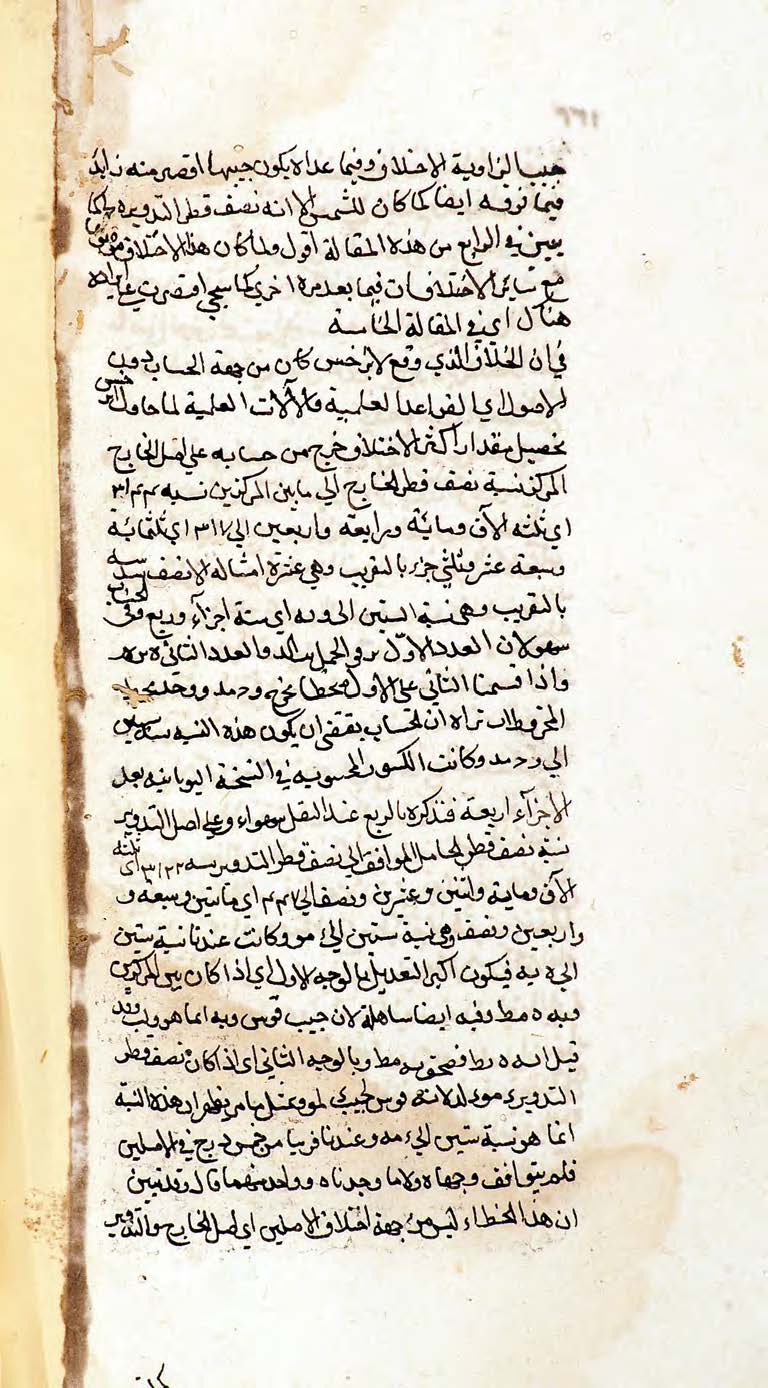 جيبا لزاوية الاختلاف وفيما عداه يكون جيبها اقصر منه زايد
فيما نوقه ايضا كما كان للشمس الا انه نصف قطر التدوير ه كما
يبين في الرابع من هذه المقالة اقول ولما كان هذا الاختلاف
مع سائر الاختلافات فيما بعد مرة اخرى كما سيجي اقتصرت على ايراده
هناك اي في المقالة الخامسة
في ان الخلاف الذي وقع لابرخس كان من جهة الحساب دون
الاصول اي القواعد العلمية والآلات العلمية لما حاول ابرخس
تحصيل مقدار اكثر الاختلاف خرج من حسابه على اصل الخارج
المركز نسبة نصف قطر الخارج الي ما بين المركزين نسبه ٣١٤٤
اي ثلثه الآف ومائة واربعة واربعين الي ٣١٧ اي ثلثمائة
وسبعة عشر وثلثي جزء بالتقريب وهي عشرة امثاله الا نصف سدسه
بالتقريب وهي نسبة الستين الى و يه اي ستة اجزآء وربع وفي الحساب
سهو لان العدد الاول والعدد الثاني
واذا قسمنا الثاني على الاول منحطا خرج و ج مد ووجد
المخروطات تراه ان الحساب يقتضي ان يكون هذه النسبه نسبة ستين
الي و ج مد وكانت الكسور المحسوبه في النسخة اليونانيه بعد
الاجزآء اربعة فذكره بالربع عند النقل سهوا وعلى اصل التدوير
نسبة نصف قطر الحامل الموافق الي نصف قطر التدوير نسبه ٣١٢٢ اي ثلثه
الآف ومايه واثنين وعشرين ونصف الي ٢٤٧ اي مائتين وسبعة و
واربعين ونصف وهي نسبة ستين الي ء مو وكانت عندنا نسبة ستين
الي ه يه فيكون اكبر التعديل بالوجه الاول اي اذا كان بين المركزين
و يه ه مط وفيه ايضا ساهلة لان جيب قوس و يه انما هو وقد
قيل انه ه مط وبالوجه الثاني اي اذا كان نصف قطر
التدوير ء مو ء لد لانه قوس لجيب ء مو وبمثل ما مر يظهر ان هذه النسبة
انما هو نسبة ستين الي ء مه وعندنا قريبا من خمس دريج في الاصلين
فلم يتوافق وجهاه ولا ما وجدناه وواحد منهما قال وقد تبين
ان هذا الخطاء ليس من جهة اختلاف الاصلين اي اصل الخارج والتدوير